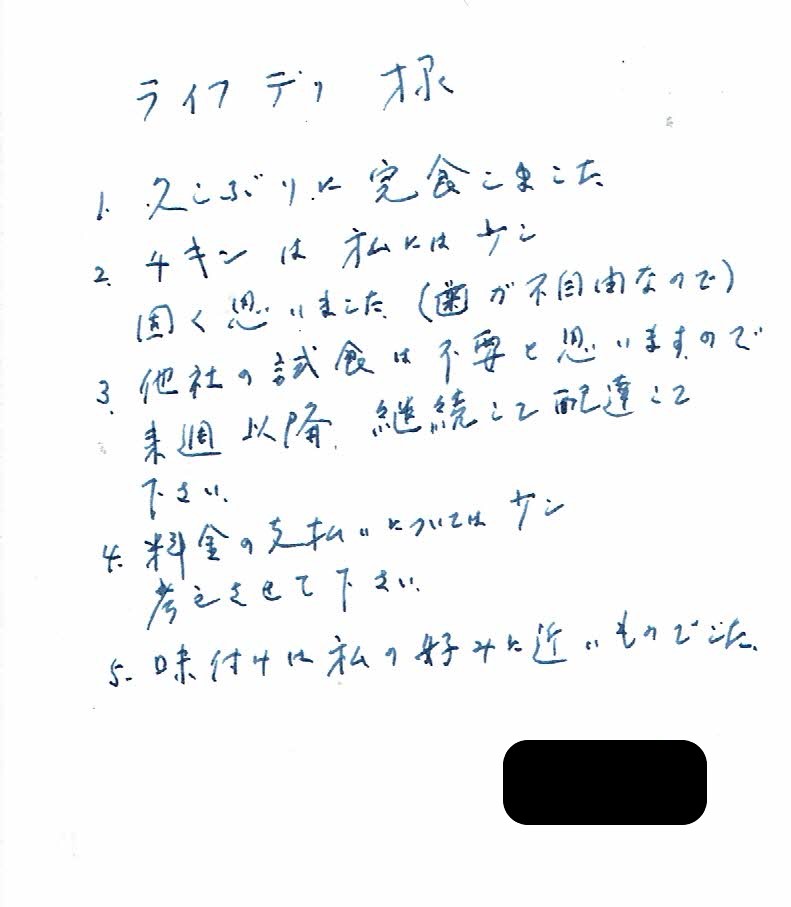 ライフデリ 様
1. 久しぶりに完食しました
2. チキンは私には少し
固く思いました(歯が不自由なので)
3. 他社の試食は不要と思いますので
来週以降、継続して配達して
下さい。
4. 料金の支払いについては少し
考えさせて下さい。
5. 味付けは私の好みに近いものでした。